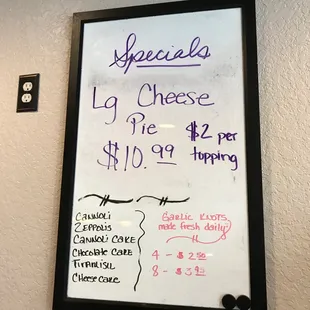 Specials
Lg Cheese
Pie
$2 per
topping
$10.99
Cannoli
Zeppolis
Cannoli Cake
Chocolate Cake
Tiramisu
Cheesecake
Garlic Knots
made fresh daily
4 - $2.50